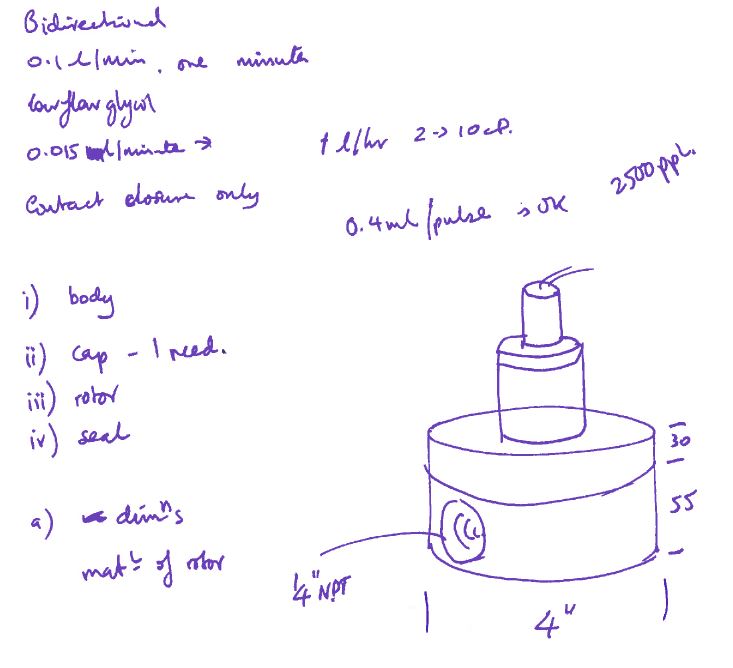 Bidirectional
0.1 l/min, one minute
low flow glycol
0.015 l/minute →
1 l/hr 2 → 10 cP.
Contact closure only
0.4 ml/pulse is OK
2500 ppl.
i) body
ii) cap - I need.
iii) rotor
iv) seal
a) dimⁿs
matˡ of rotor
1/4" NPT
30
55
4"